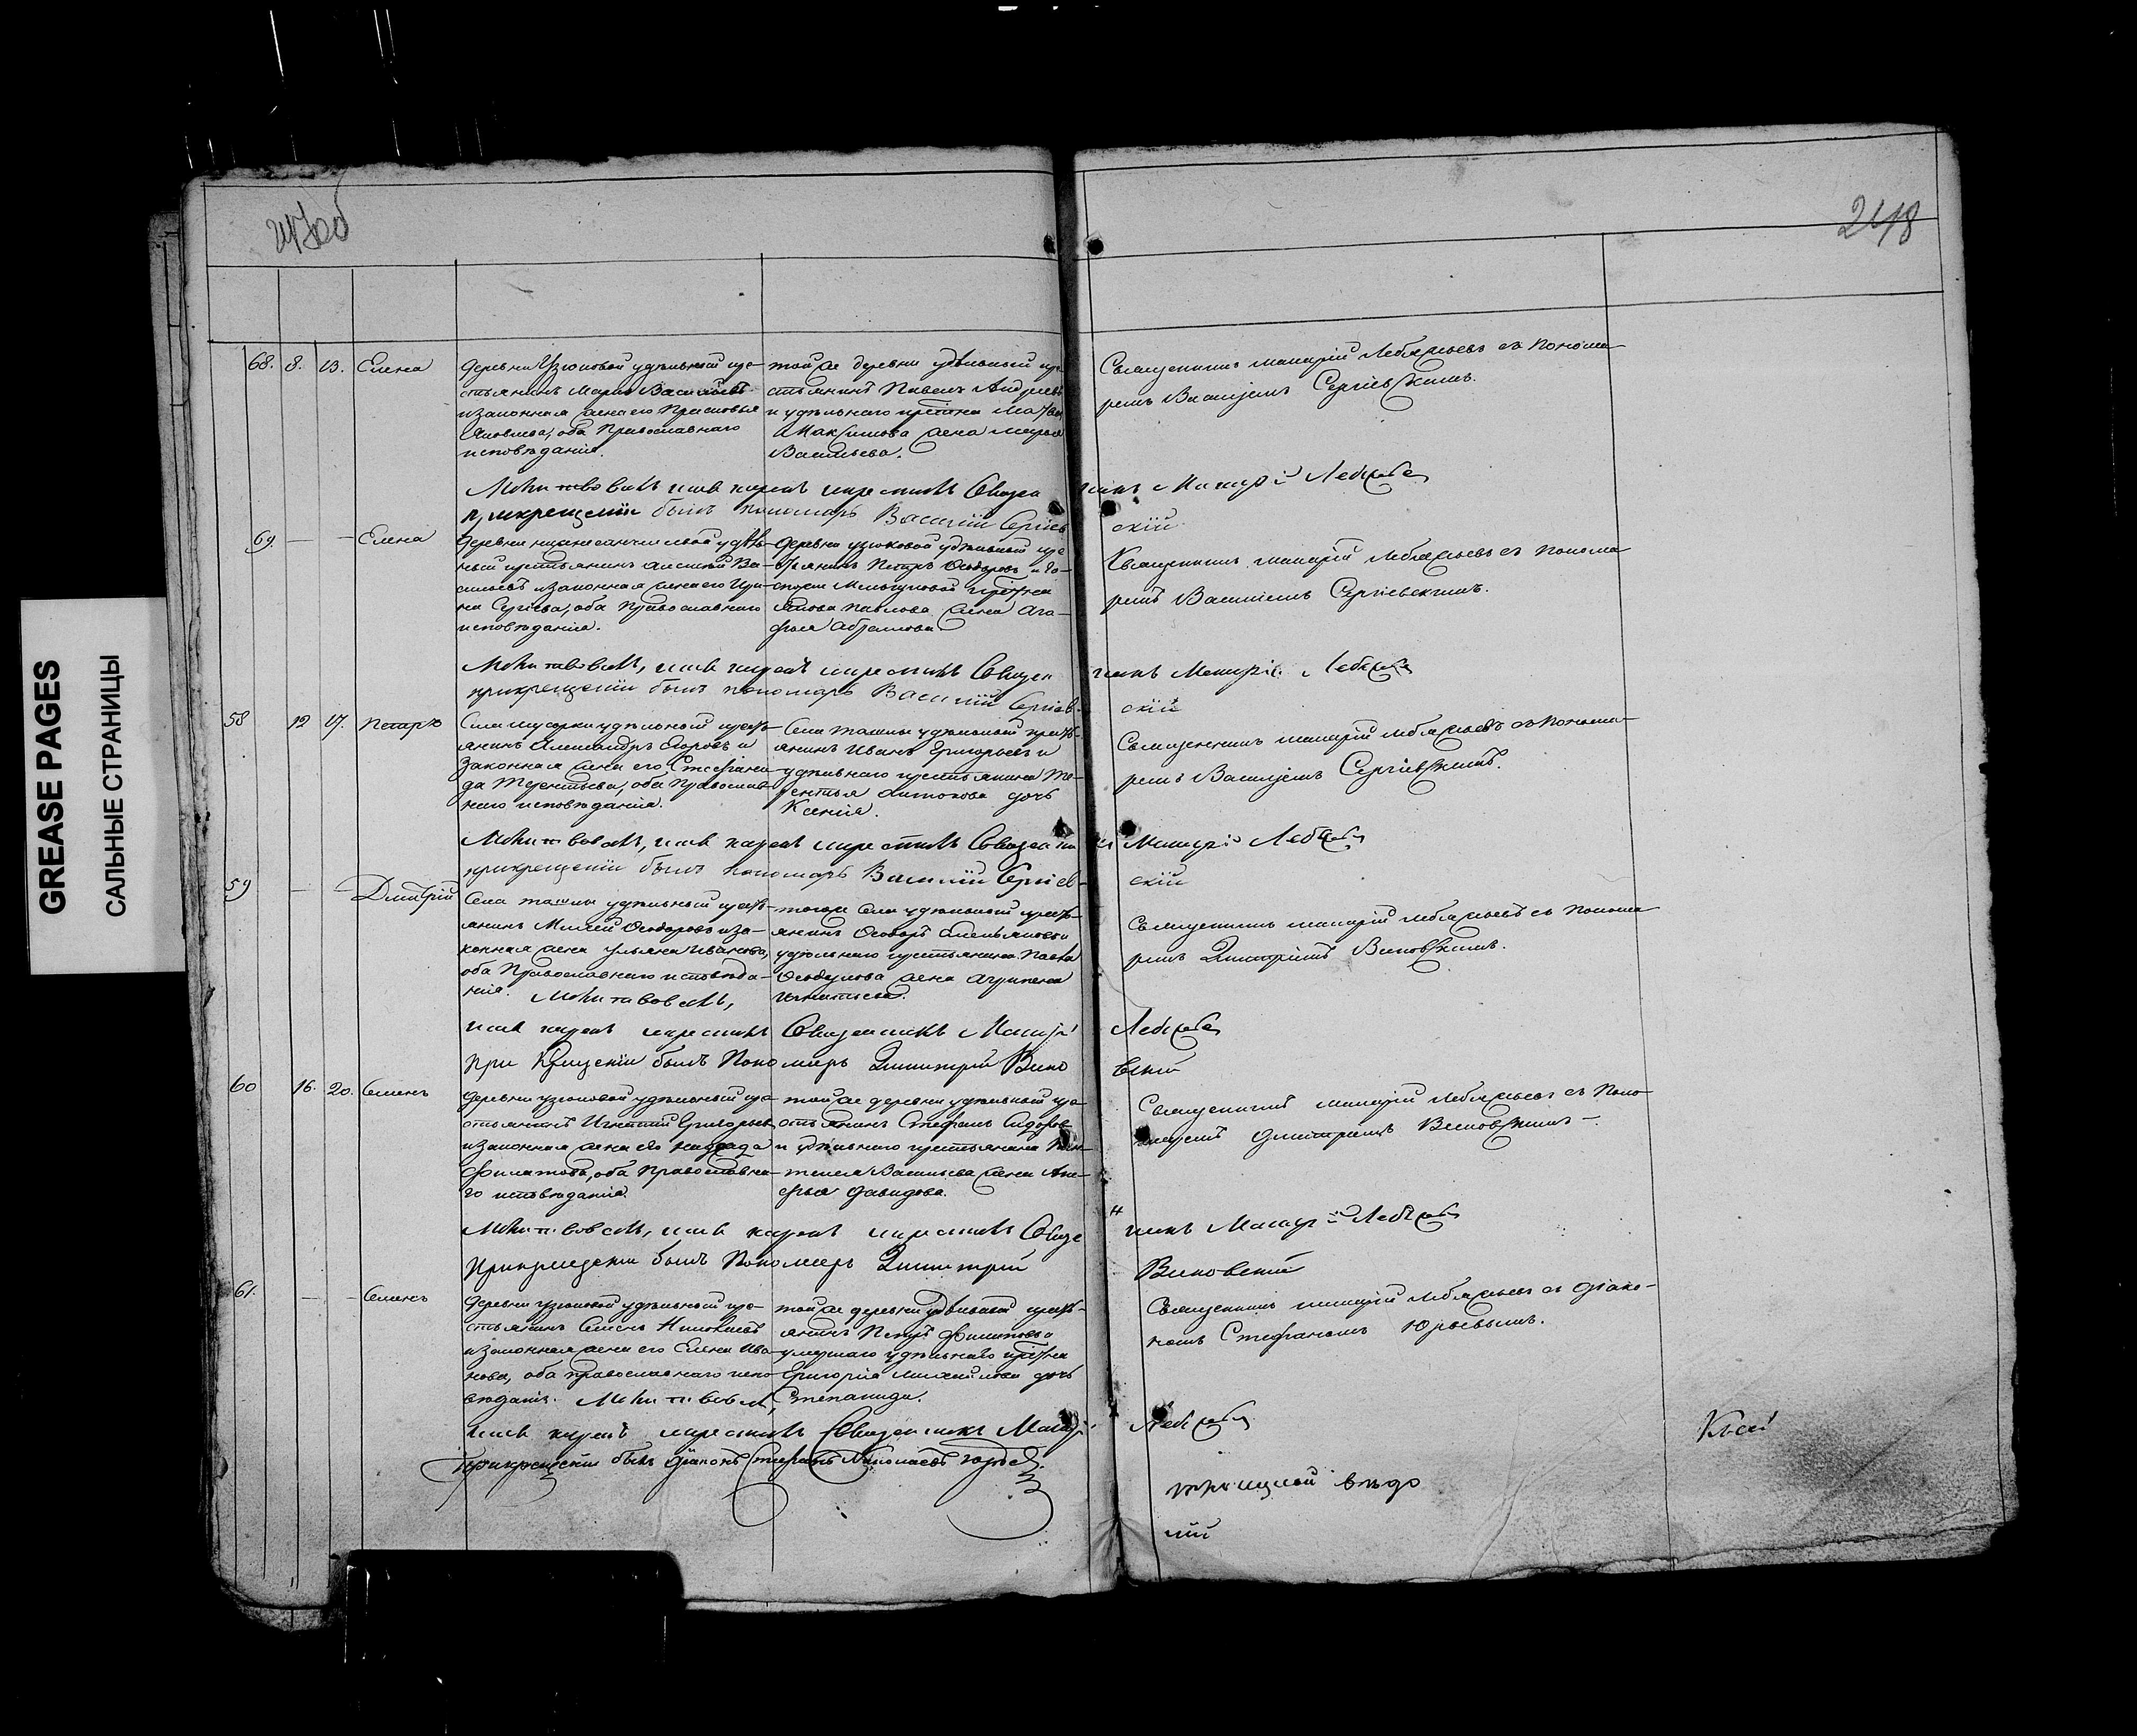 GREASE PAGES
САЛЬНЫЕ СТРАНИЦЫ
247об
248
68. 8. 13. Елена
Деревни Узюковой удѣльный кре-
стьянинъ Марко Васильевъ
и законная жена его Прасковья
Яковлева, оба Православнаго
исповѣданія.
той же деревни удѣльный кре
стьянинъ Павелъ Андреевъ
и удѣльнаго крестьянина
Максимова жена Марья
Васильева.
Священникъ Макарій Лебяжьевъ съ Понома
ремъ Василіемъ Сергіевскимъ.
Молитвовалъ, имя нарекъ и крестилъ Священникъ Макарій Лебяжьевъ
при крещеніи былъ пономарь Василій Сергіевскій
69. — — Елена
удѣль-
ный крестьянинъ Алексѣй Ва-
сильевъ и законная жена его Ири-
на Сергіева, оба Православнаго
исповѣданія.
Деревни Узюковой удѣльный кре
стьянинъ Петръ Ѳеодоровъ и
Якова Павлова жена Ага-
фья Абрамова
Священникъ Макарій Лебяжьевъ съ Понома
ремъ Василіемъ Сергіевскимъ.
Молитвовалъ, имя нарекъ и крестилъ Священникъ Макарій Лебяжьевъ
при крещеніи былъ пономарь Василій Сергіевскій
58 12 17. Петръ
Села Мусорки удѣльный кресть-
янинъ Александръ Егоровъ и
законная жена его Стефани-
да Терентьева, оба Православ-
наго исповѣданія.
Села Ташлы удѣльный кресть-
янинъ Иванъ Григорьевъ и
удѣльнаго крестьянина Те-
рентья Антонова дочь
Ксенія.
Священникъ Макарій Лебяжьевъ съ Понома-
ремъ Василіемъ Сергіевскимъ.
Молитвовалъ, имя нарекъ и крестилъ Священникъ Макарій Лебяжьевъ
при крещеніи былъ пономарь Василій Сергіевскій
59 — — Дмитрій
Села Ташлы удѣльный кресть-
янинъ Ѳеодоровъ и за-
конная жена Ульяна Иванова,
оба Православнаго исповѣда-
нія. Молитвовалъ,
того же Села удѣльный кресть-
янинъ Ѳеодоръ Емельяновъ и
удѣльнаго крестьянина Павла
Ѳеодулова жена Агрипена
Игнатьева.
Священникъ Макарій Лебяжьевъ съ Понома
ремъ Димитріемъ Виновскимъ.
имя нарекъ и крестилъ Священникъ Макарій Лебяжьевъ
при крещеніи былъ Пономарь Димитрій Виновскій
60 16. 20. Семенъ
Деревни Узюковой удѣльный кре
стьянинъ Игнатій Григорьевъ
и законная жена его
Филатова, оба Православна-
го исповѣданія.
той же деревни удѣльный кре
стьянинъ Стефанъ Сидоровъ
и удѣльнаго крестьянина Пан-
телея Васильева жена
Давидова.
Священникъ Макарій Лебяжьевъ съ Поно
маремъ Димитріемъ Виновскимъ —
Молитвовалъ, имя нарекъ и крестилъ Священникъ Макарій Лебяжьевъ
При крещеніи былъ Пономарь Димитрій Виновскій
61. — — Семенъ
Деревни Узюковой удѣльный кре-
стьянинъ Семенъ Николаевъ
и законная жена его Елена Ива-
нова, оба православнаго испо-
вѣданія. Молитвовалъ,
той же деревни удѣльный кресть-
янинъ Петръ Филиповъ и
умершаго удѣльнаго
Григорія Михайлова дочь
Степанида.
Священникъ Макарій Лебяжьевъ съ Діако-
номъ Стефаномъ Юрьевымъ.
имя нарекъ и крестилъ Священникъ Макарій Лебяжьевъ
При крещеніи былъ Діаконъ Стефанъ Николаевъ Юрьевъ.
Къ сей